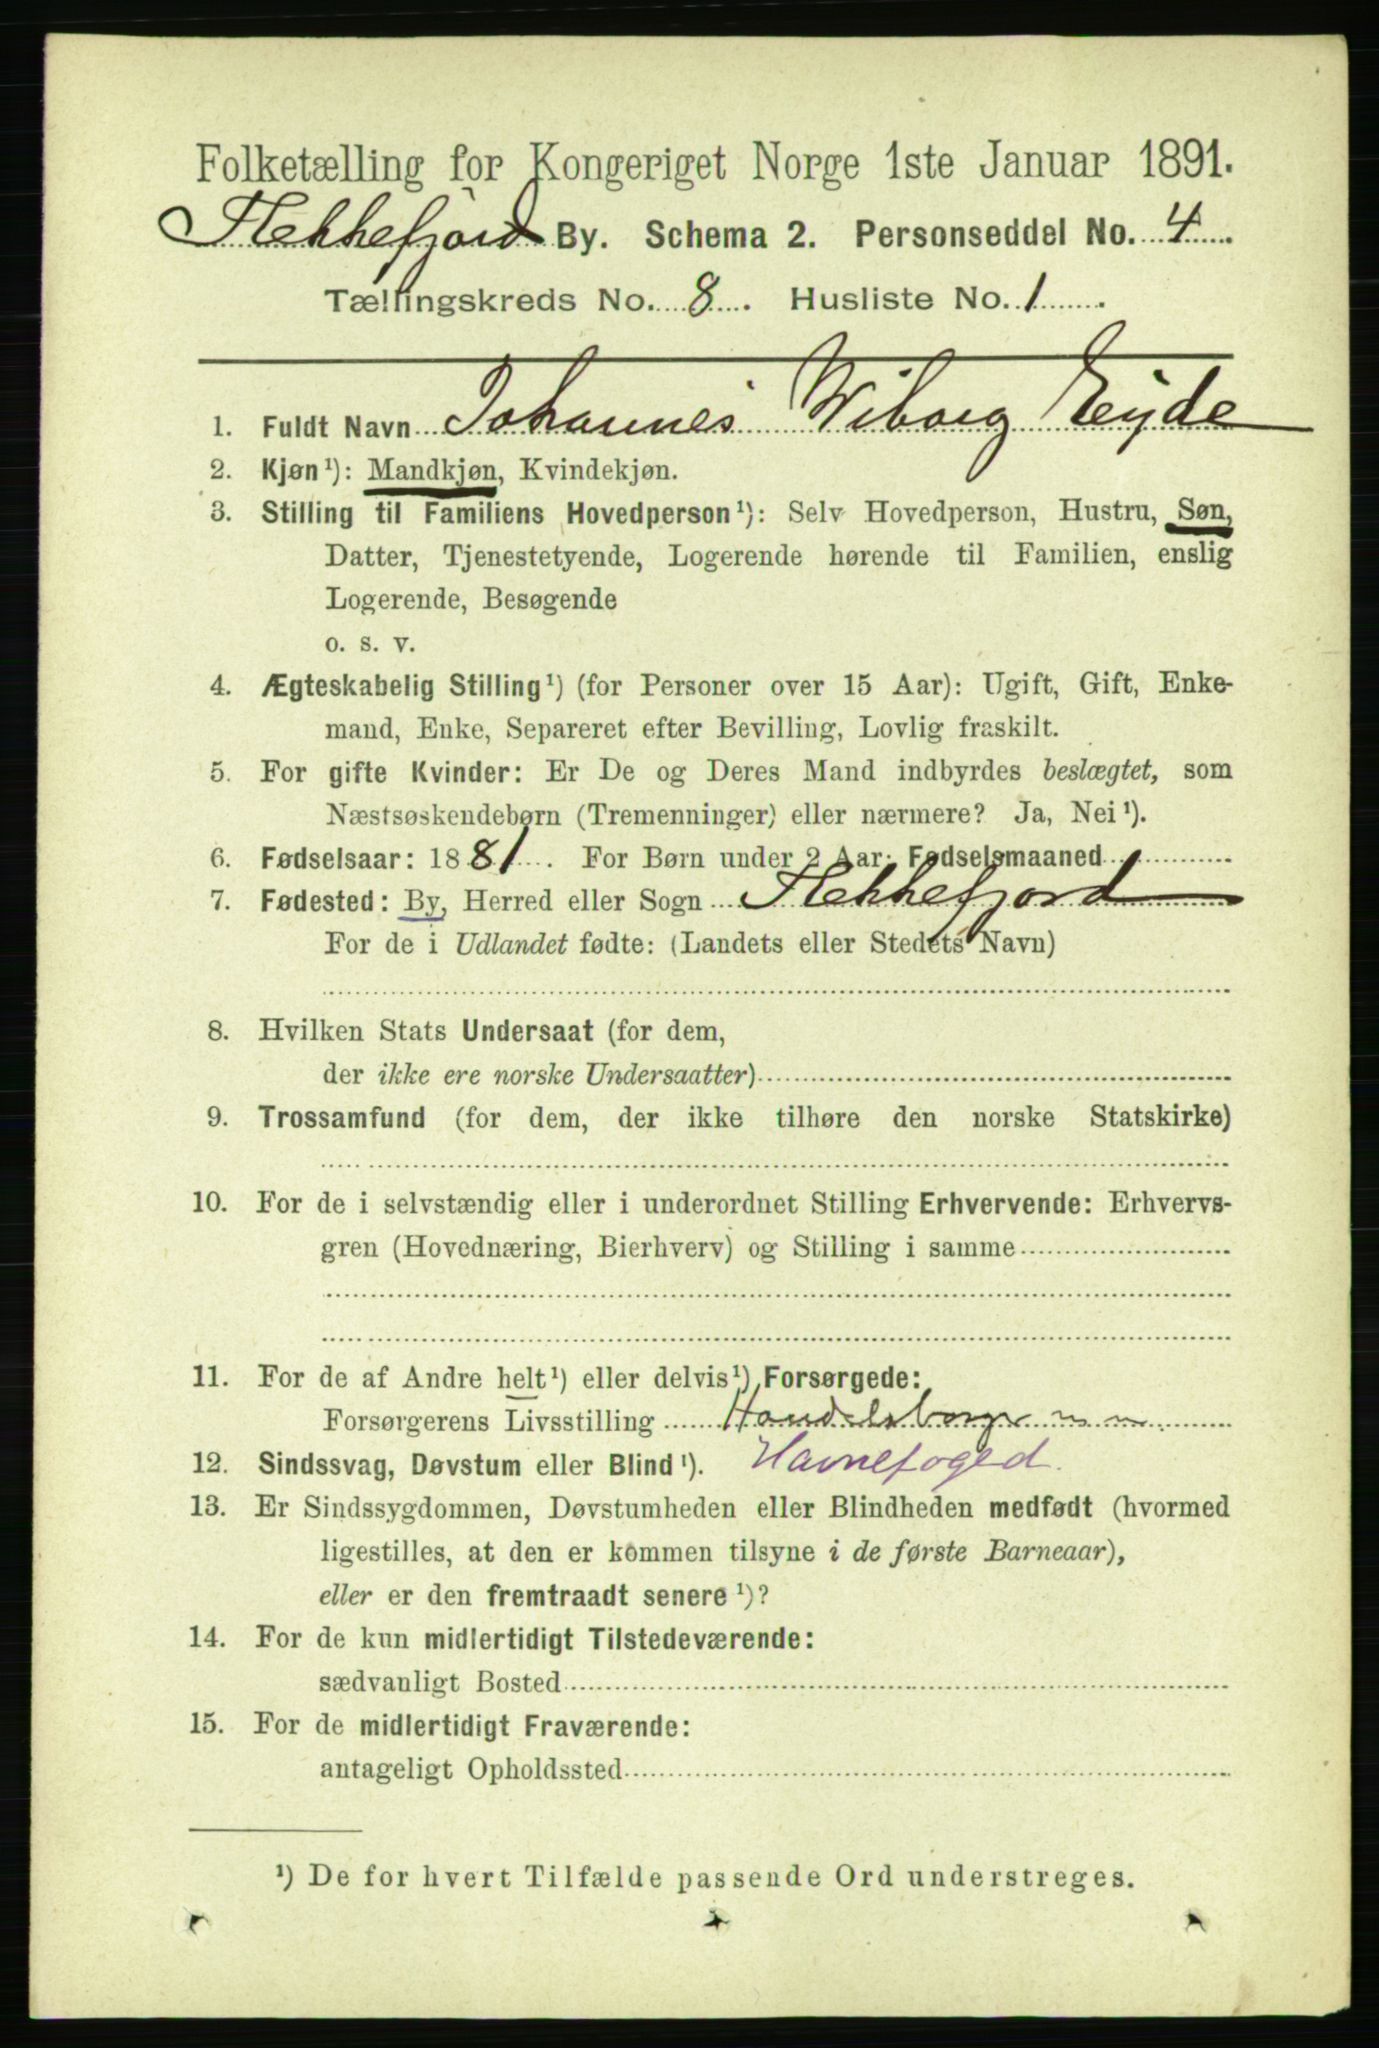 Folketælling for Kongeriget Norge 1ste Januar 1891.
Flekkefjord By. Schema 2. Personseddel No. 4
Tællingskreds No. 8. Husliste No. 1.
1. Fuldt Navn Johannes Wiborg Eyde
2. Kjøn¹): Mandkjøn, Kvindekjøn.
3. Stilling til Familiens Hovedperson¹): Selv Hovedperson, Hustru, Søn,
Datter, Tjenestetyende, Logerende hørende til Familien, enslig
Logerende, Besøgende
o. s. v.
4. Ægteskabelig Stilling¹) (for Personer over 15 Aar): Ugift, Gift, Enke-
mand, Enke, Separeret efter Bevilling, Lovlig fraskilt.
5. For gifte Kvinder: Er De og Deres Mand indbyrdes beslægtet, som
Næstsøskendebørn (Tremenninger) eller nærmere? Ja, Nei¹).
6. Fødselsaar: 1881. For Børn under 2 Aar: Fødselsmaaned
7. Fødested: By, Herred eller Sogn Flekkefjord
For de i Udlandet fødte: (Landets eller Stedets Navn)
8. Hvilken Stats Undersaat (for dem,
der ikke ere norske Undersaatter)
9. Trossamfund (for dem, der ikke tilhøre den norske Statskirke)
10. For de i selvstændig eller i underordnet Stilling Erhvervende: Erhvervs-
gren (Hovednæring, Bierhverv) og Stilling i samme
11. For de af Andre helt¹) eller delvis¹) Forsørgede:
Forsørgerens Livsstilling Handelsborger m m.
12. Sindssvag, Døvstum eller Blind¹). Havnefoged.
13. Er Sindssygdommen, Døvstumheden eller Blindheden medfødt (hvormed
ligestilles, at den er kommen tilsyne i de første Barneaar),
eller er den fremtraadt senere¹)?
14. For de kun midlertidigt Tilstedeværende:
sædvanligt Bosted
15. For de midlertidigt Fraværende:
antageligt Opholdssted
¹) De for hvert Tilfælde passende Ord understreges.